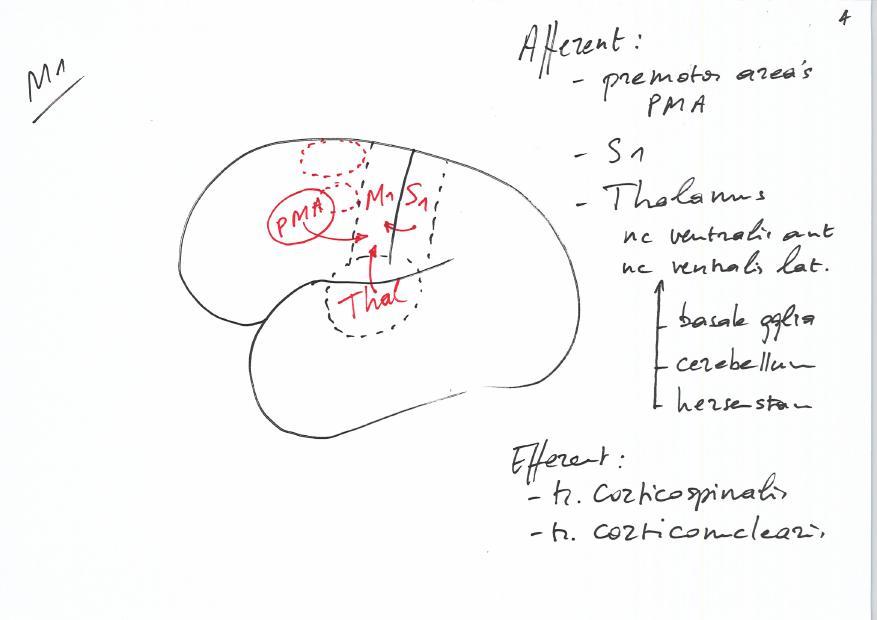 4
M1
Afferent:
- premotor area's
PMA
- S1
- Thalamus
nc ventralis ant
nc ventralis lat.
- basale gglia
- cerebellum
- hersenstam
PMA
M1
S1
Thal
Efferent:
- tr. corticospinalis
- tr. corticonuclearis